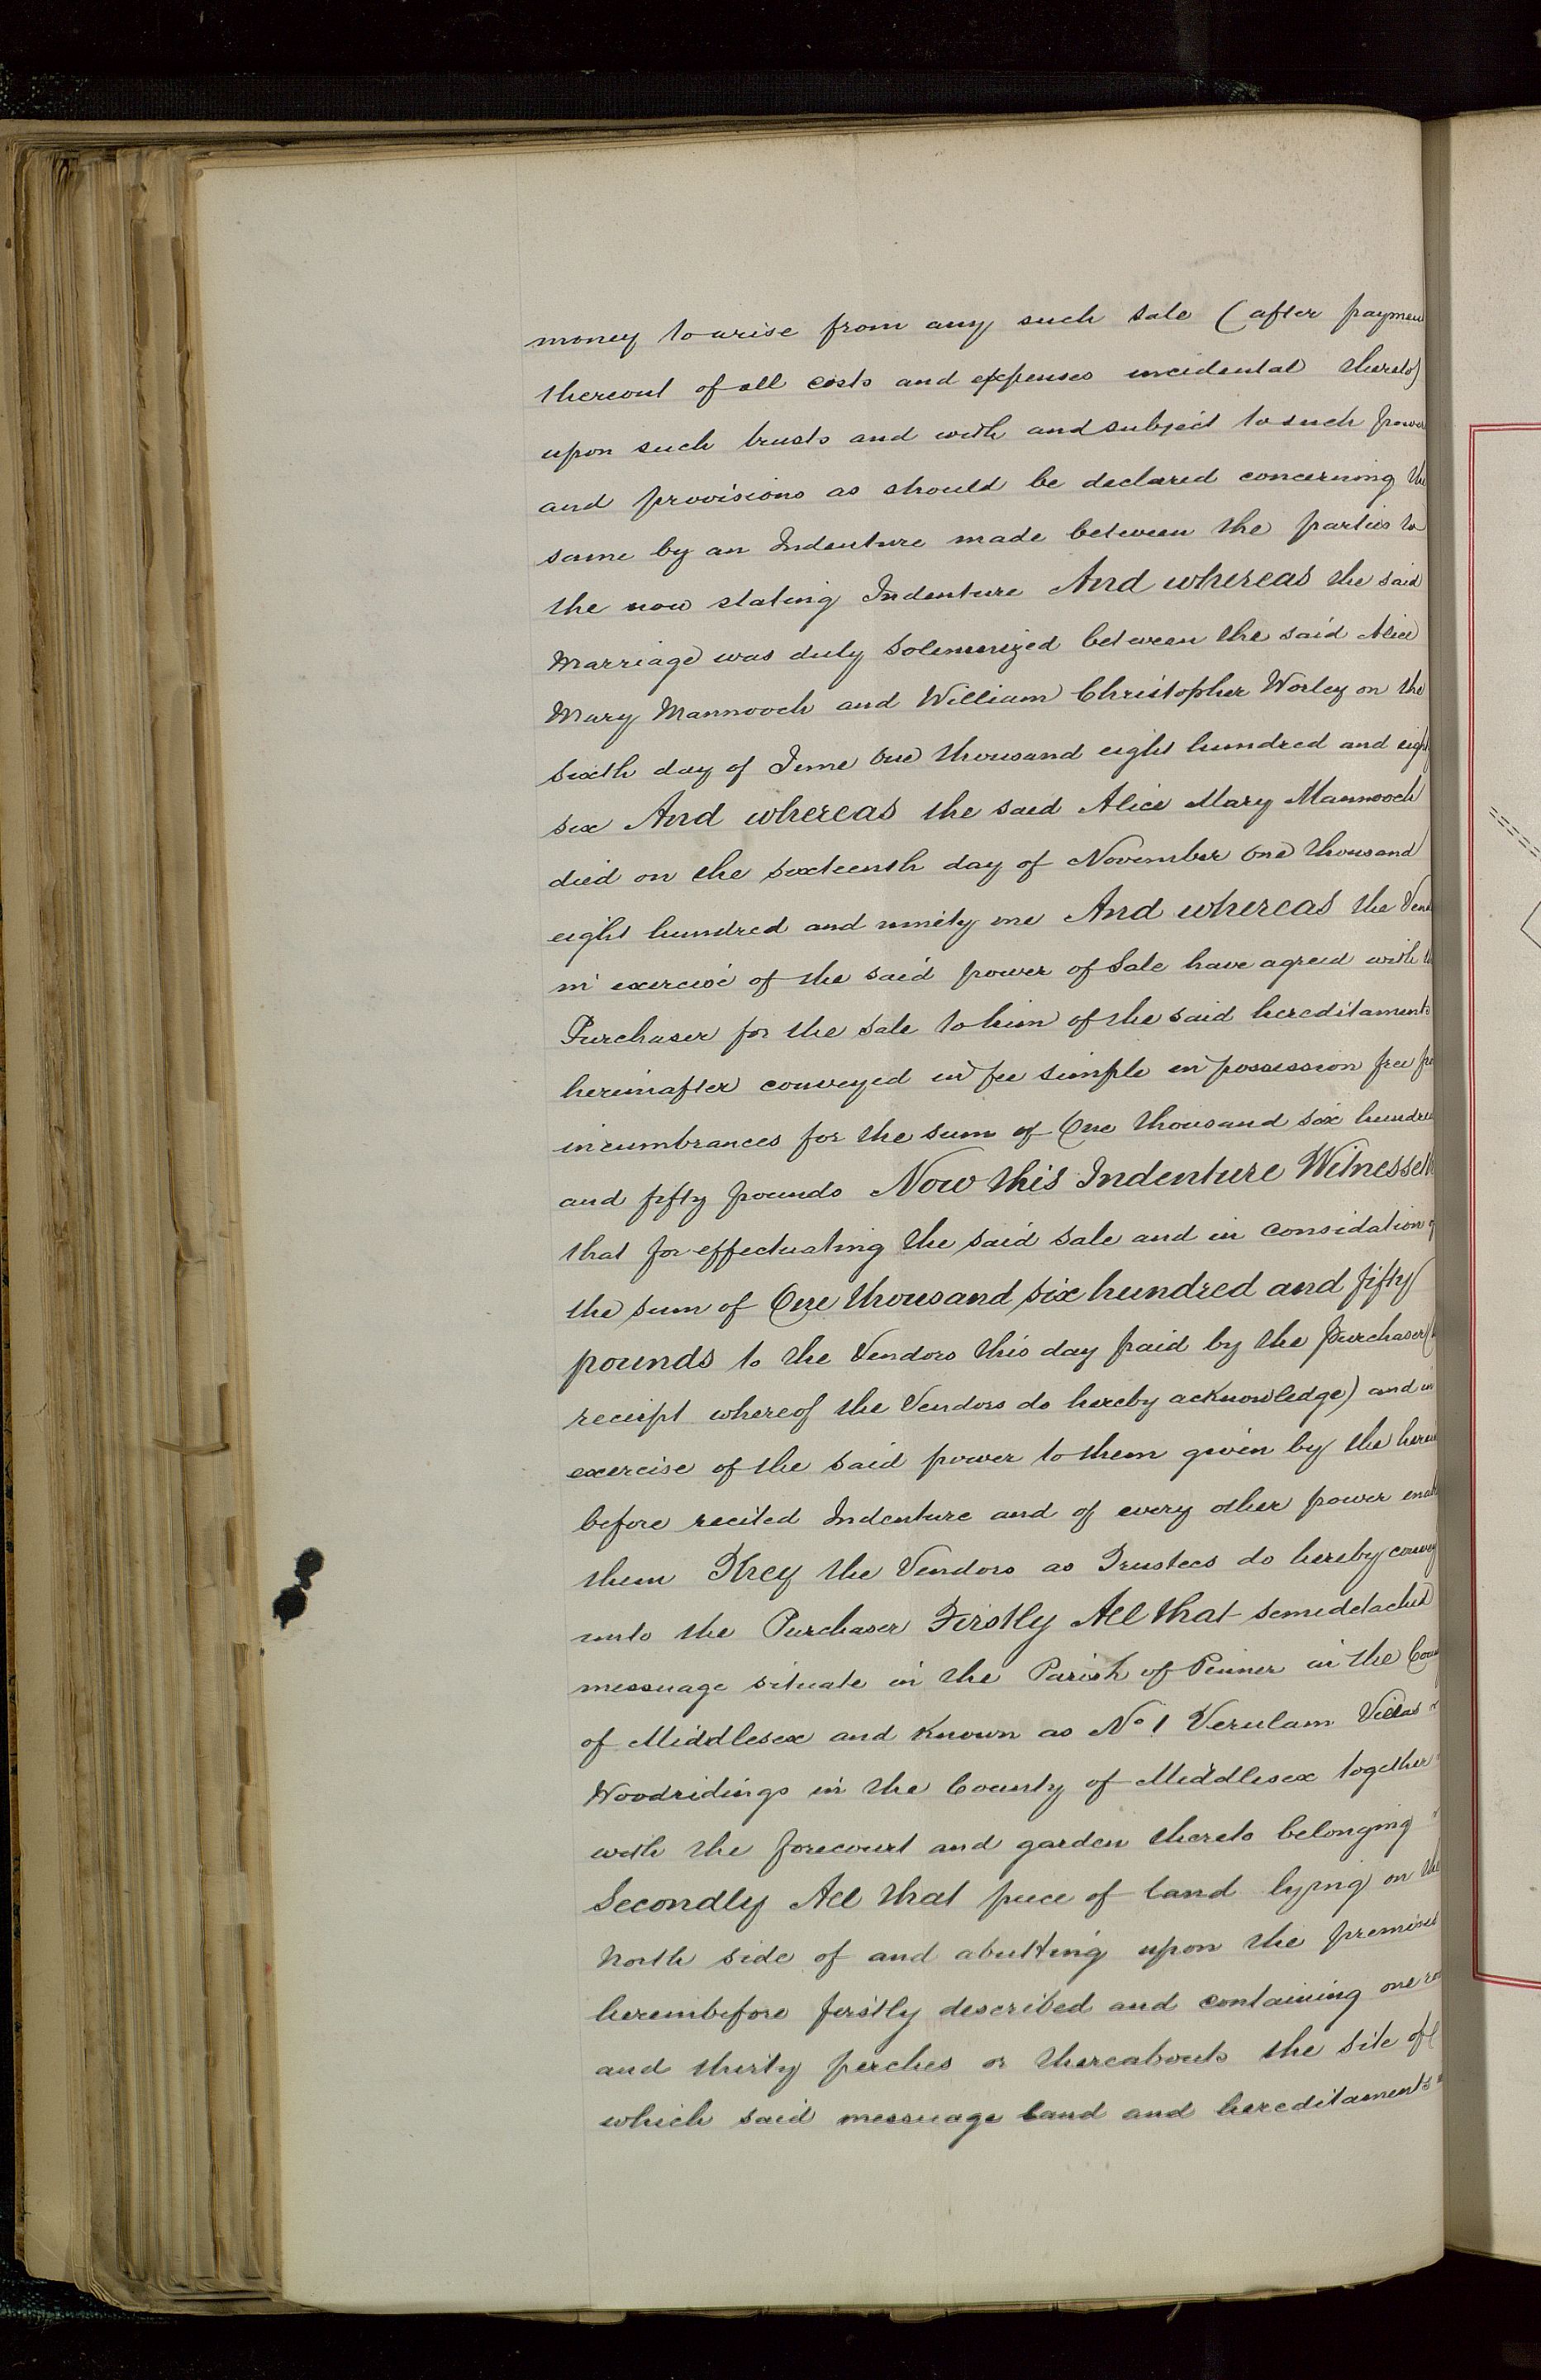 money to arise from any such sale (after paymen
thereout of all costs and expenses incidental thereto)
upon such trusts and with and subject to such power
and provisions as should be declared concerning the
same by an Indenture made between the parties to
the now stating Indenture And whereas the said
Marriage was duly solemnized between the said Alice
Mary Mannooch and William Christopher Worley on the
sixth day of June One thousand eight hundred and eigh
six And whereas the said Alice Mary Mannooch
died on the sixteenth day of November One thousand
eight hundred and ninety one And whereas the Ven
in exercise of the said power of Sale have agreed with
Purchaser for the sale to him of the said hereditaments
hereinafter conveyed in fee simple in possession free
incumbrances for the sum of One thousand six hundre
and fifty pounds Now this Indenture Witnesseth
that for effectuating the said sale and in considation
the sum of One thousand six hundred and fifty
pounds to the Vendors this day paid by the Purchaser (
receipt whereof the Vendors do hereby acknowledge) and in
exercise of the said power to them given by the herein
before recited Indenture and of every other power enab
them They the Vendors as Trustees do hereby convey
unto the Purchaser Firstly All that semidetached
messuage situate in the Parish of Pinner in the Coun
of Middlesex and known as No 1 Verulam Villas
Woodridings in the County of Middlesex together
with the forecourt and garden thereto belonging
Secondly All that piece of land lying on the
North side of and abutting upon the premises
hereinbefore firstly described and containing one ro
and thirty perches or thereabouts the site of
which said messuage land and hereditaments